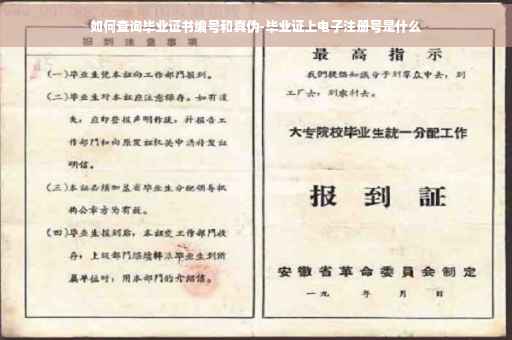 如何查询毕业证书编号和真伪-毕业证上电子注册号是什么
报到注意事项
(一)毕业生凭本证向工作部门报到。
(二)毕业生对本证应注意保存。如有遗
失，应即登报声明作废，并报告工
作部门和向原发证机关申请补发证
明信。
(三)本证必须加盖省毕业生分配领导机
构公章方为有效。
(四)毕业生报到后，本证交工作部门收
存；上级部门继续转派毕业生到所
属单位时，用本部门的介绍信。
最高指示
我们提倡知识分子到群众中去，到
工厂去，到农村去。
大专院校毕业生统一分配工作
报到証
安徽省革命委員会制定
一九 年 月 日